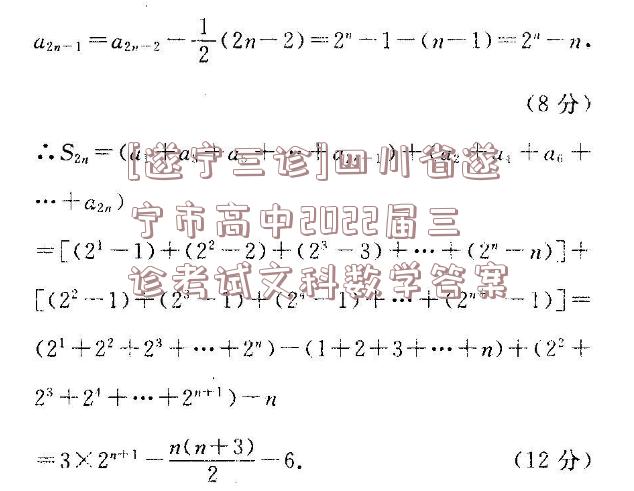 a₂ₙ₋₁=a₂ₙ₋₂-1/2(2n-2)=2ⁿ-1-(n-1)=2ⁿ-n.
(8分)
∴S₂ₙ=(a₁+a₃+a₅+⋯+a₂ₙ₋₁)+(a₂+a₄+a₆+
⋯+a₂ₙ)
[遂宁三诊]四川省遂
宁市高中2022届三
诊考试文科数学答案
=[(2¹-1)+(2²-2)+(2³-3)+⋯+(2ⁿ-n)]+
[(2²-1)+(2³-1)+(2⁴-1)+⋯+(2ⁿ⁺¹-1)]=
(2¹+2²+2³+⋯+2ⁿ)-(1+2+3+⋯+n)+(2²+
2³+2⁴+⋯+2ⁿ⁺¹)-n
=3×2ⁿ⁺¹-n(n+3)/2-6.
(12分)